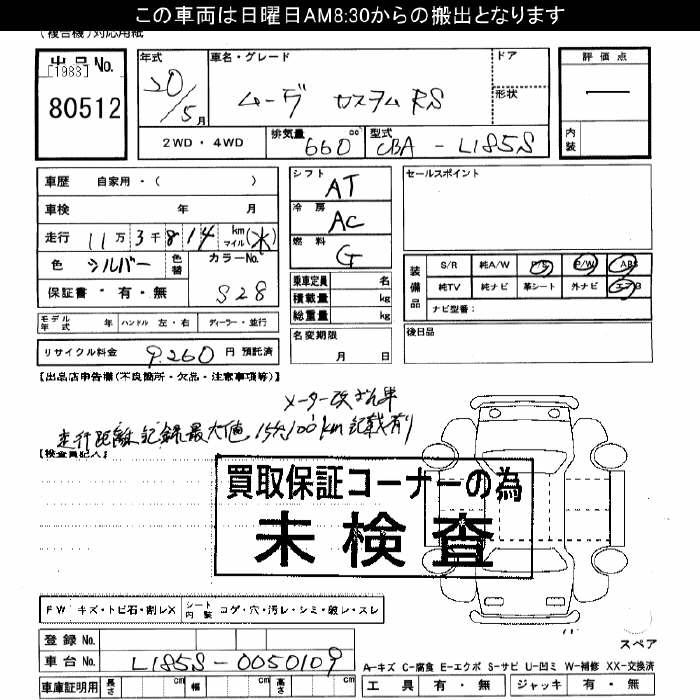 この車両は日曜日AM8:30からの搬出となります
(複合機)対応用紙
出品No.
[1983]
80512
年式
20/5月
車名・グレード
ムーヴ カスタムRS
ドア
形状
2WD・4WD
排気量
660 cc
型式
CBA - L185S
評価点
内装
車歴 自家用・( )
車検 年 月
走行 11万3千814 km マイル(*)
色 シルバー 色替 カラーNo. S28
保証書・有・無
シフト AT
冷房 AC
燃料 G
乗車定員 名
積載量 kg
総重量 kg
名変期限
月 日
セールスポイント
装備品
S/R 純A/W P/S P/W ABS
純TV 純ナビ 革シート 外ナビ エアB
ナビ型番:
後日品
モデル年式 年 ハンドル 左・右 ディーラー・並行
リサイクル料金 9,260 円 預託済
【出品店申告欄(不良箇所・欠品・注意事項等)】
メーター改ざん車
走行距離記録最大値 157,100km記載有り
【検査員記入】
買取保証コーナーの為
未検査
FW キズ・トビ石・割レX シート内装 コゲ・穴・汚レ・シミ・破レ・スレ
登録No.
車台No. L185S-0050109
車庫証明用 長さ cm 幅 cm 高さ cm
スペア
A-キズ C-腐食 E-エクボ S-サビ U-凹ミ W-補修 XX-交換済
工具 有・無 ジャッキ 有・無